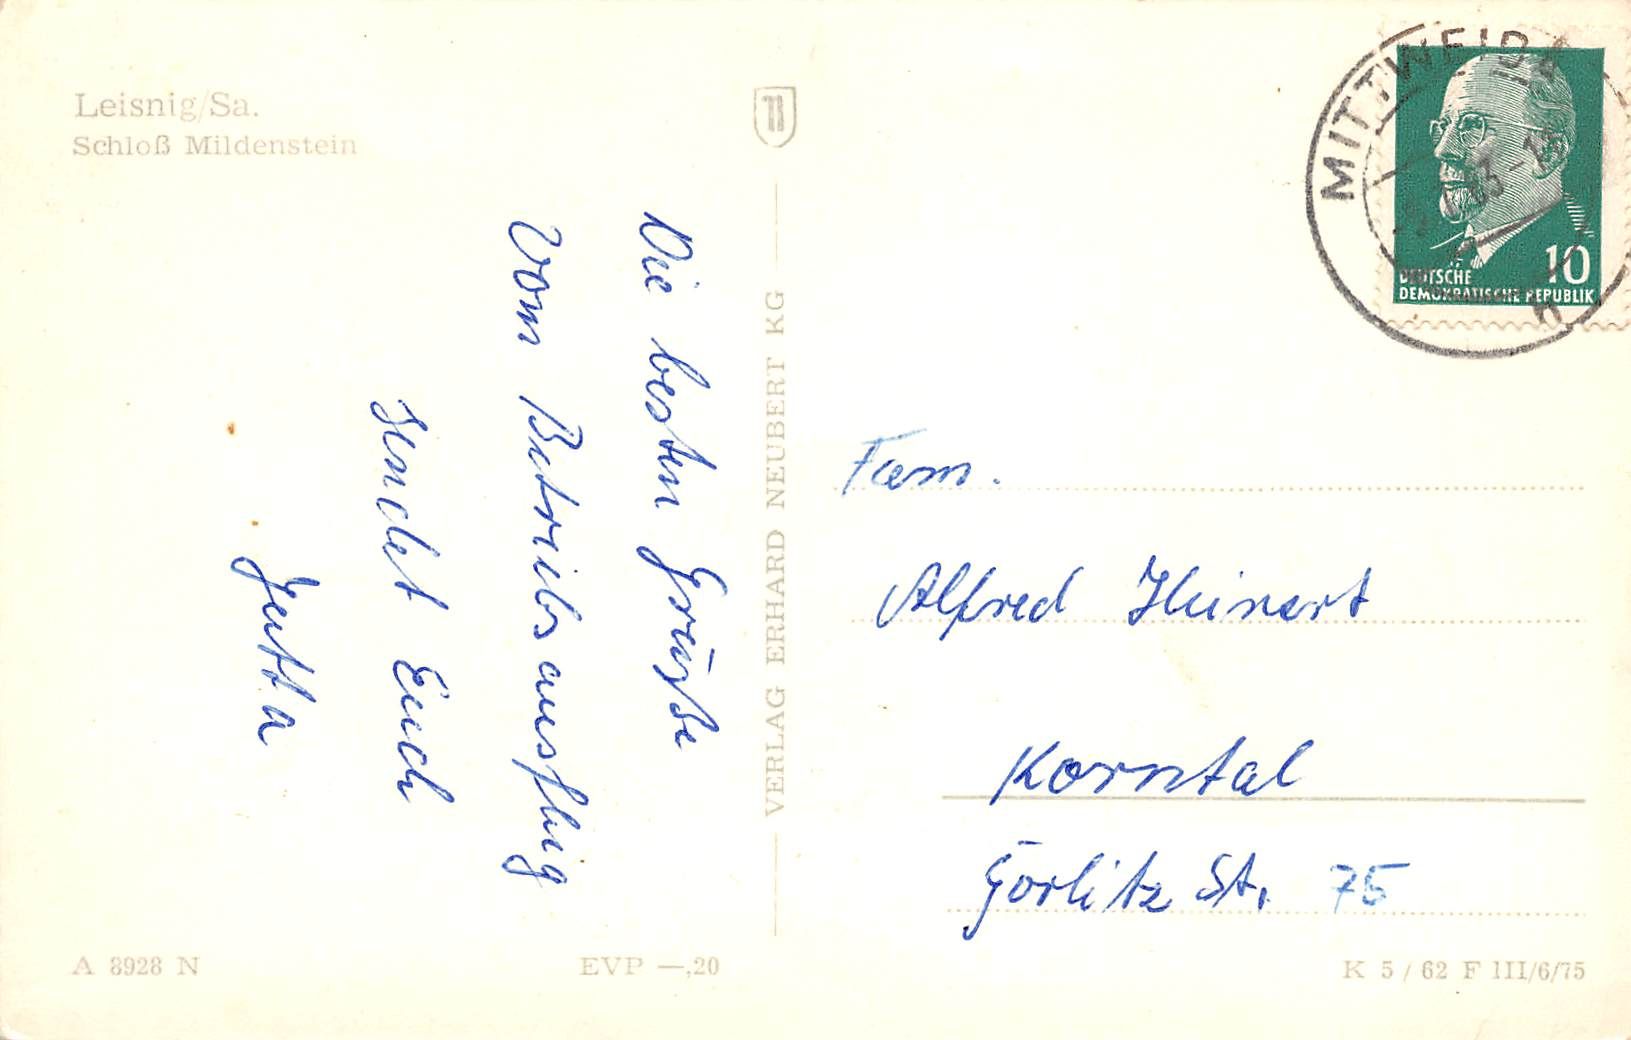 Leisnig/Sa.
Schloß Mildenstein
Die besten Grüße
vom Betriebsausflug
sendet Euch
Jutta
VERLAG ERHARD NEUBERT KG
MITTWEIDA
DEUTSCHE
DEMOKRATISCHE REPUBLIK
10
Fam.
Alfred Heinert
Korntal
Görlitz Str. 75
A 8928 N
EVP —,20
K 5 / 62 F III/6/75